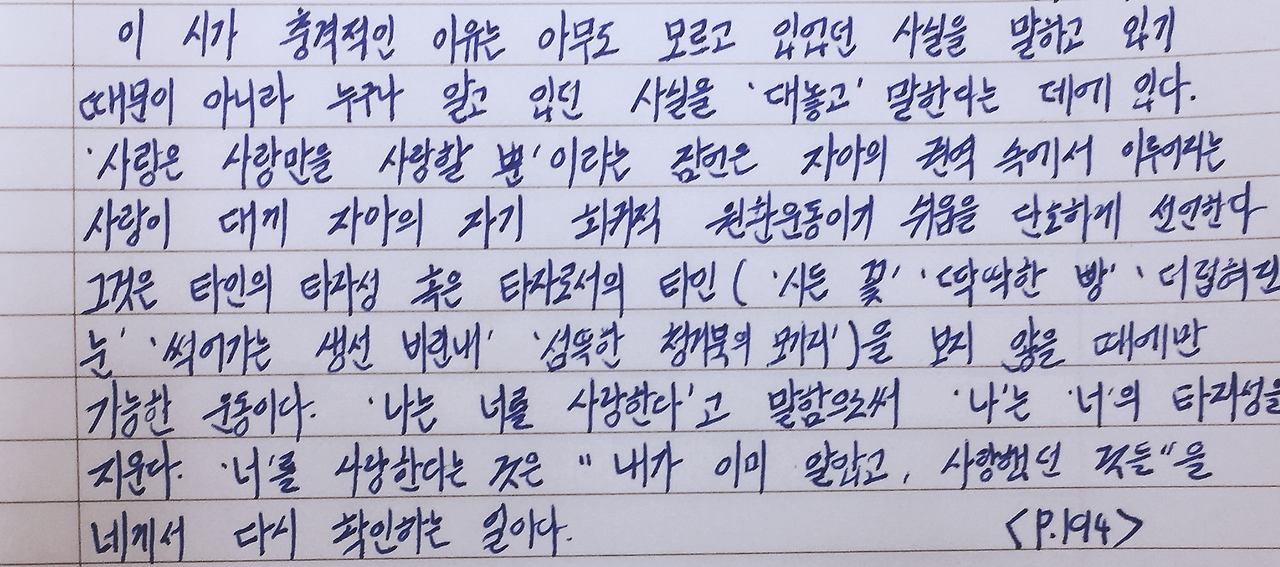 이 시가 충격적인 이유는 아무도 모르고 있었던 사실을 말하고 있기
때문이 아니라 누구나 알고 있던 사실을 '대놓고' 말한다는 데에 있다.
'사랑은 사랑만을 사랑할 뿐'이라는 잠언은 자아의 권역 속에서 이루어지는
사랑이 대개 자아의 자기 회귀적 원환운동이기 쉬움을 단호하게 선언한다
그것은 타인의 타자성 혹은 타자로서의 타인 ( '시든 꽃' '딱딱한 빵' '더럽혀진
눈' '썩어가는 생선 비린내' '섬뜩한 청거북의 모가지')을 보지 않을 때에만
가능한 운동이다. '나는 너를 사랑한다'고 말함으로써 '나'는 '너'의 타자성을
지운다. '너'를 사랑한다는 것은 "내가 이미 알았고, 사랑했던 것들"을
네게서 다시 확인하는 일이다. <P.194>